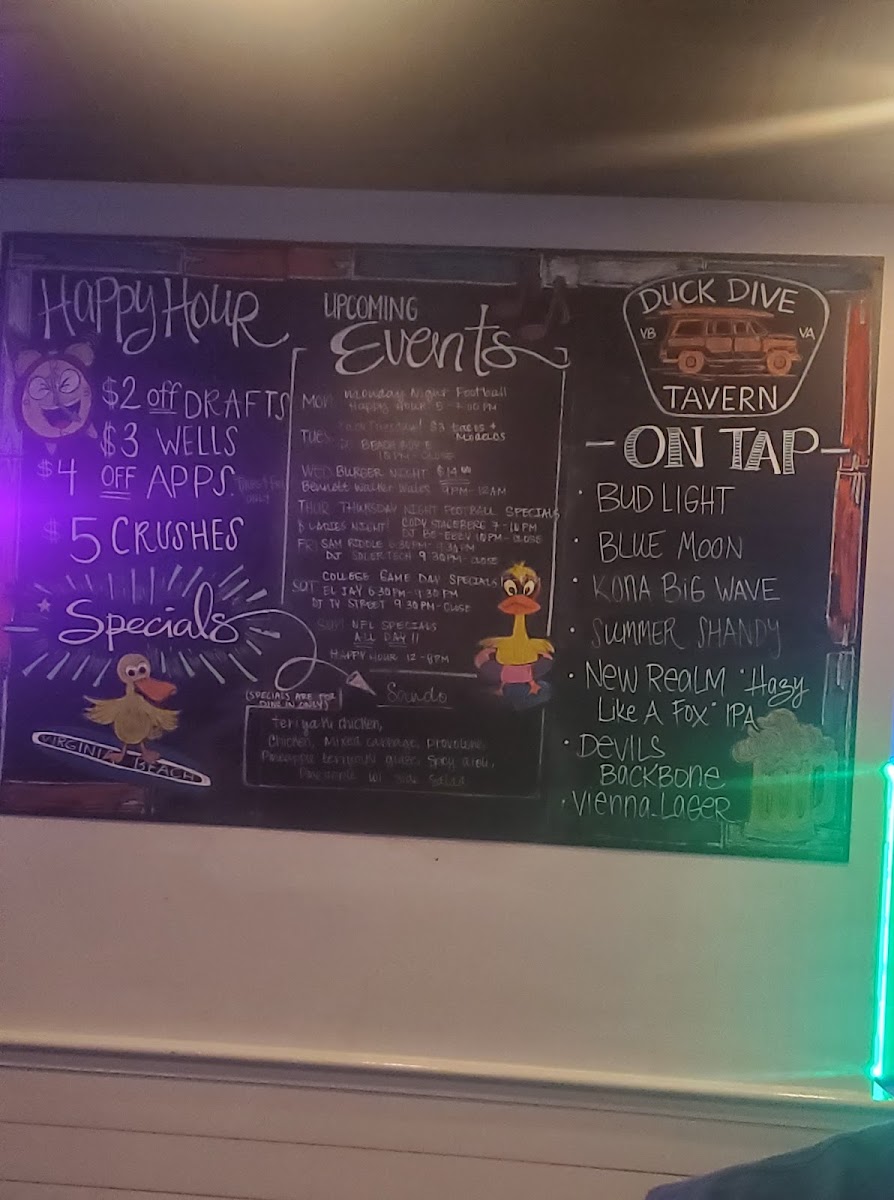 Happy Hour
$2 off DRAFTS
$3 WELLS
$4 OFF APPS
ONLY
$5 CRUSHES
Specials
VIRGINIA BEACH
UPCOMING
Events
MON Monday Night Football
Happy Hour 5 - 7:00 PM
TUES Tuesday! $3 tacos +
Modelos
10PM - CLOSE
WED BURGER NIGHT $14.00
Bennett Walter Wales 9PM - 12AM
THUR THURSDAY NIGHT FOOTBALL SPECIALS
& LADIES NIGHT! CODY 7 - 10 PM
DJ 10PM - CLOSE
FRI SAM RIDDLE 6:30PM - 9:30PM
DJ 9:30PM - CLOSE
SAT COLLEGE GAME DAY SPECIALS
EL JAY 6:30PM - 9:30PM
DJ TV STREET 9:30PM - CLOSE
SUN NFL SPECIALS
ALL DAY !!
HAPPY HOUR 12 - 8PM
(SPECIALS ARE FOR
DINE IN ONLY)
Sando
teriyaki chicken,
Chicken, Mixed cabbage, provolone,
Pineapple teriyaki glaze, Spicy aioli,
w/ side salad
DUCK DIVE
VB VA
TAVERN
- ON TAP -
• BUD LIGHT
• BLUE MOON
• KONA BIG WAVE
• SUMMER SHANDY
• NEW REALM "Hazy
LIKE A FOX" IPA
• DEVILS
BACKBONE
• VIENNA LAGER